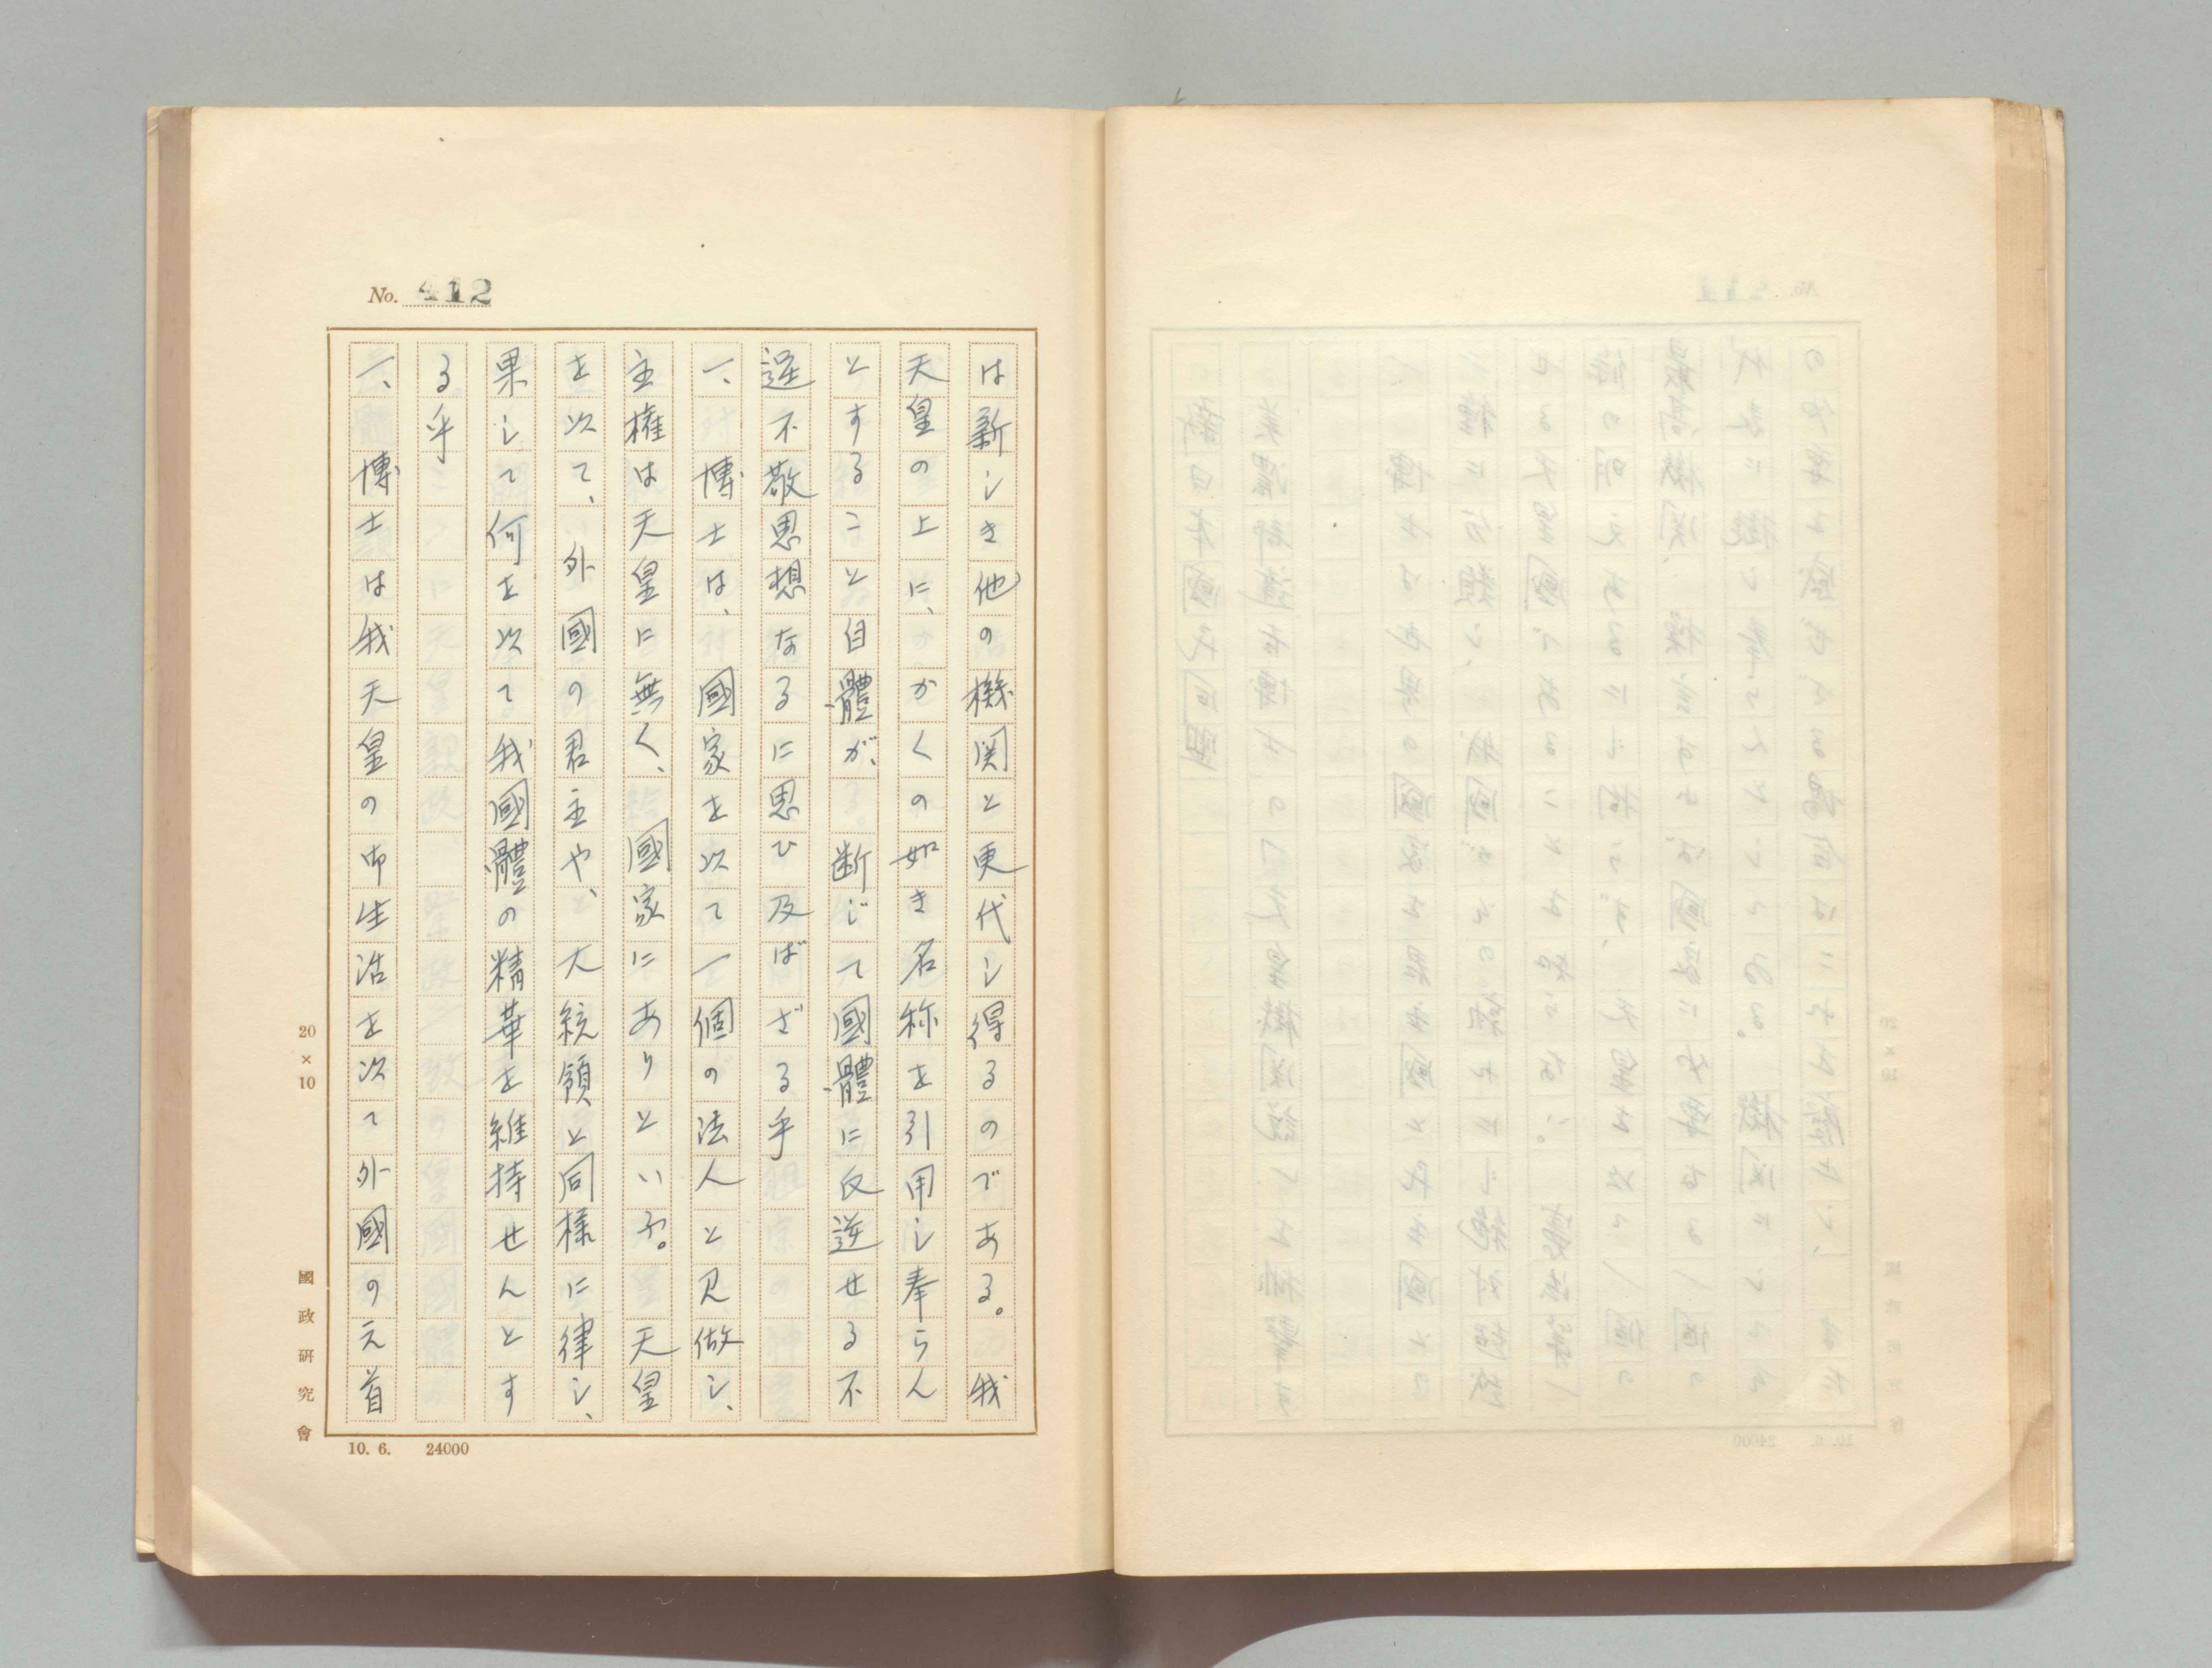 No. 412
は新しき他の機関と更代し得るのである。我
天皇の上に、かくの如き名称を引用し奉らん
とすること自體が、断じて國體に反逆せる不
逞不敬思想なるに思ひ及ばざる乎
一、博士は、國家を以て一個の法人と見做し、
主権は天皇に無く、國家にありといふ。天皇
を以て、外國の君主や、大統領と同様に律し、
果して何を以て我國體の精華を維持せんとす
る乎
一、博士は我天皇の御生活を以て外國の元首
20×10
國政研究會
10. 6. 24000